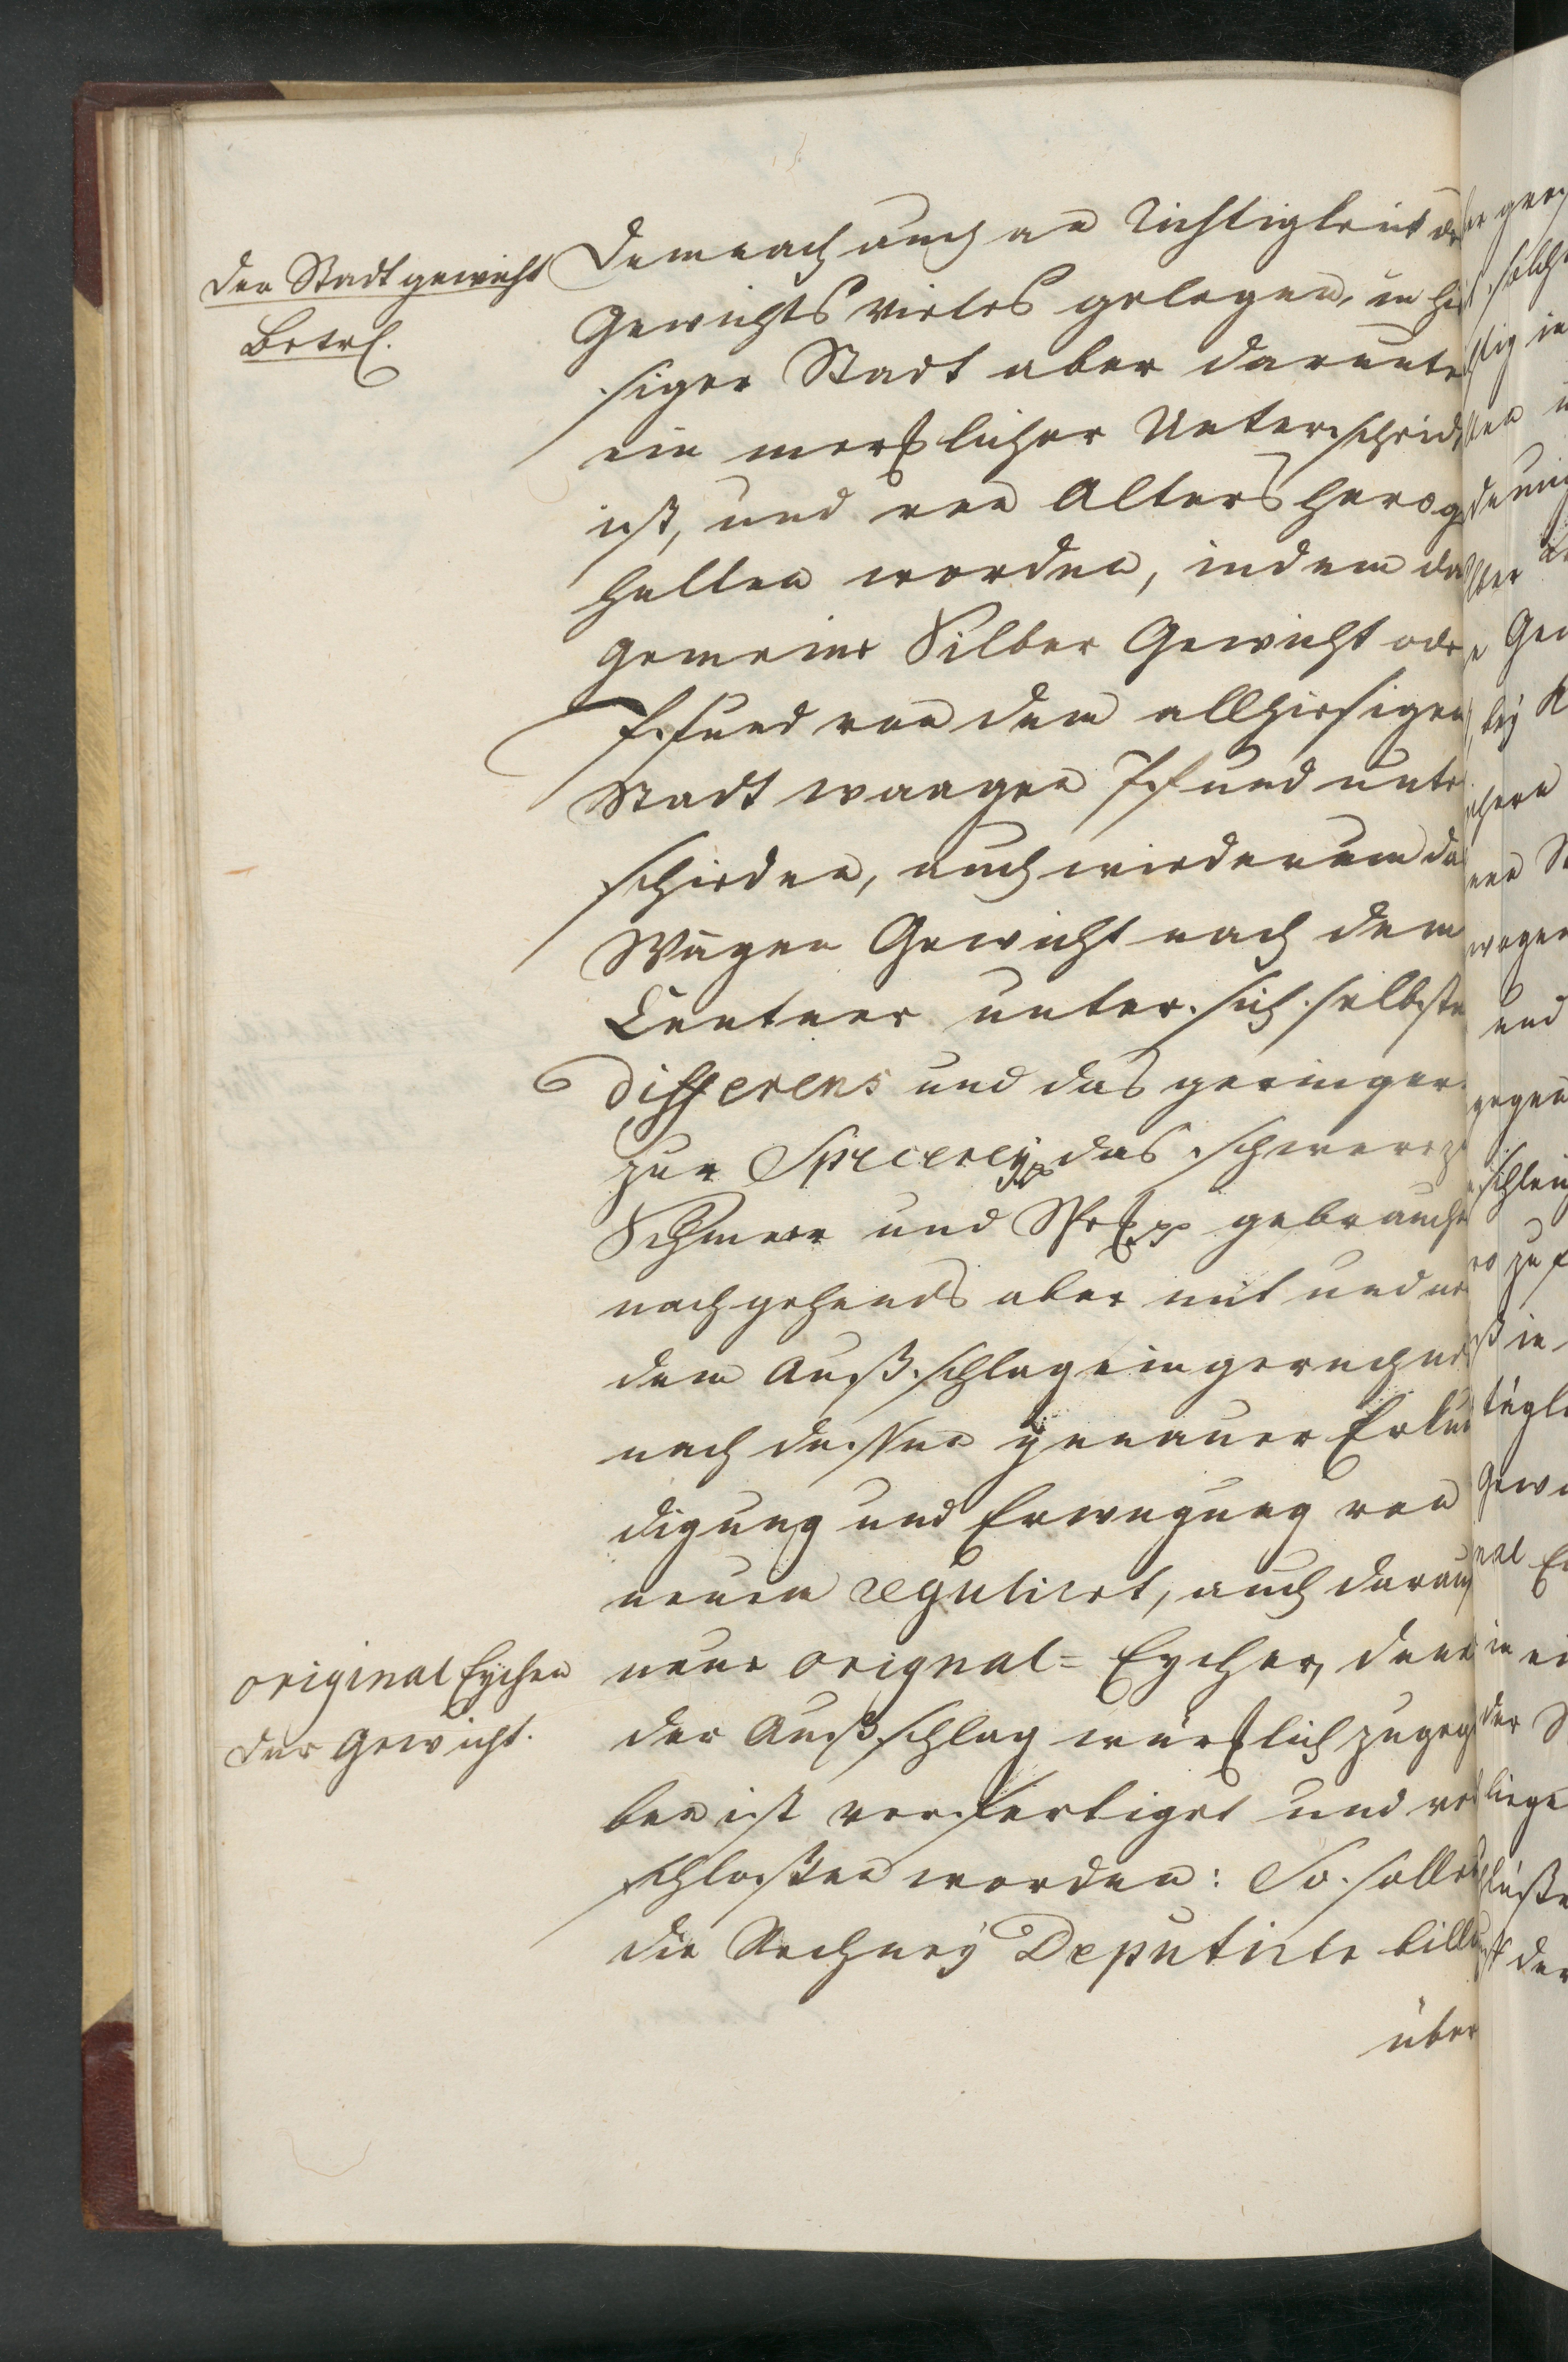 der Stadt gewicht
Betrf.
Demnach auch an Richtigkeit de
Gewichts vieles gelegen, in hie
siger Stadt aber darunte
ein mercklicher Unterscheid,
ist, und von Alters hero ge
halten worden, indem da
gemeine Silber Gewicht ode
Pfund von dem allhiesigen
Stadt waagen Pfund unte
schieden, auch wiederum da
Wagen Gewicht nach dem
Centner unter sich selbsten
differens und das geringer
zur Specerey, das schwere z
Schmeer und Speck gebrauche
nachgehends aber mit und no
dem Außschlag eingerechne
nach dessen genauer Erkun
digung und Erwegung von
neuen regulirt, auch darauf
neue orignal= Eycher, dene
der Außschlag würcklich zugege
ben ist verfertiget und ve
schlossen worden: So sollen
die Rechney Deputirte bill
über
original Eychen
der Gewicht.